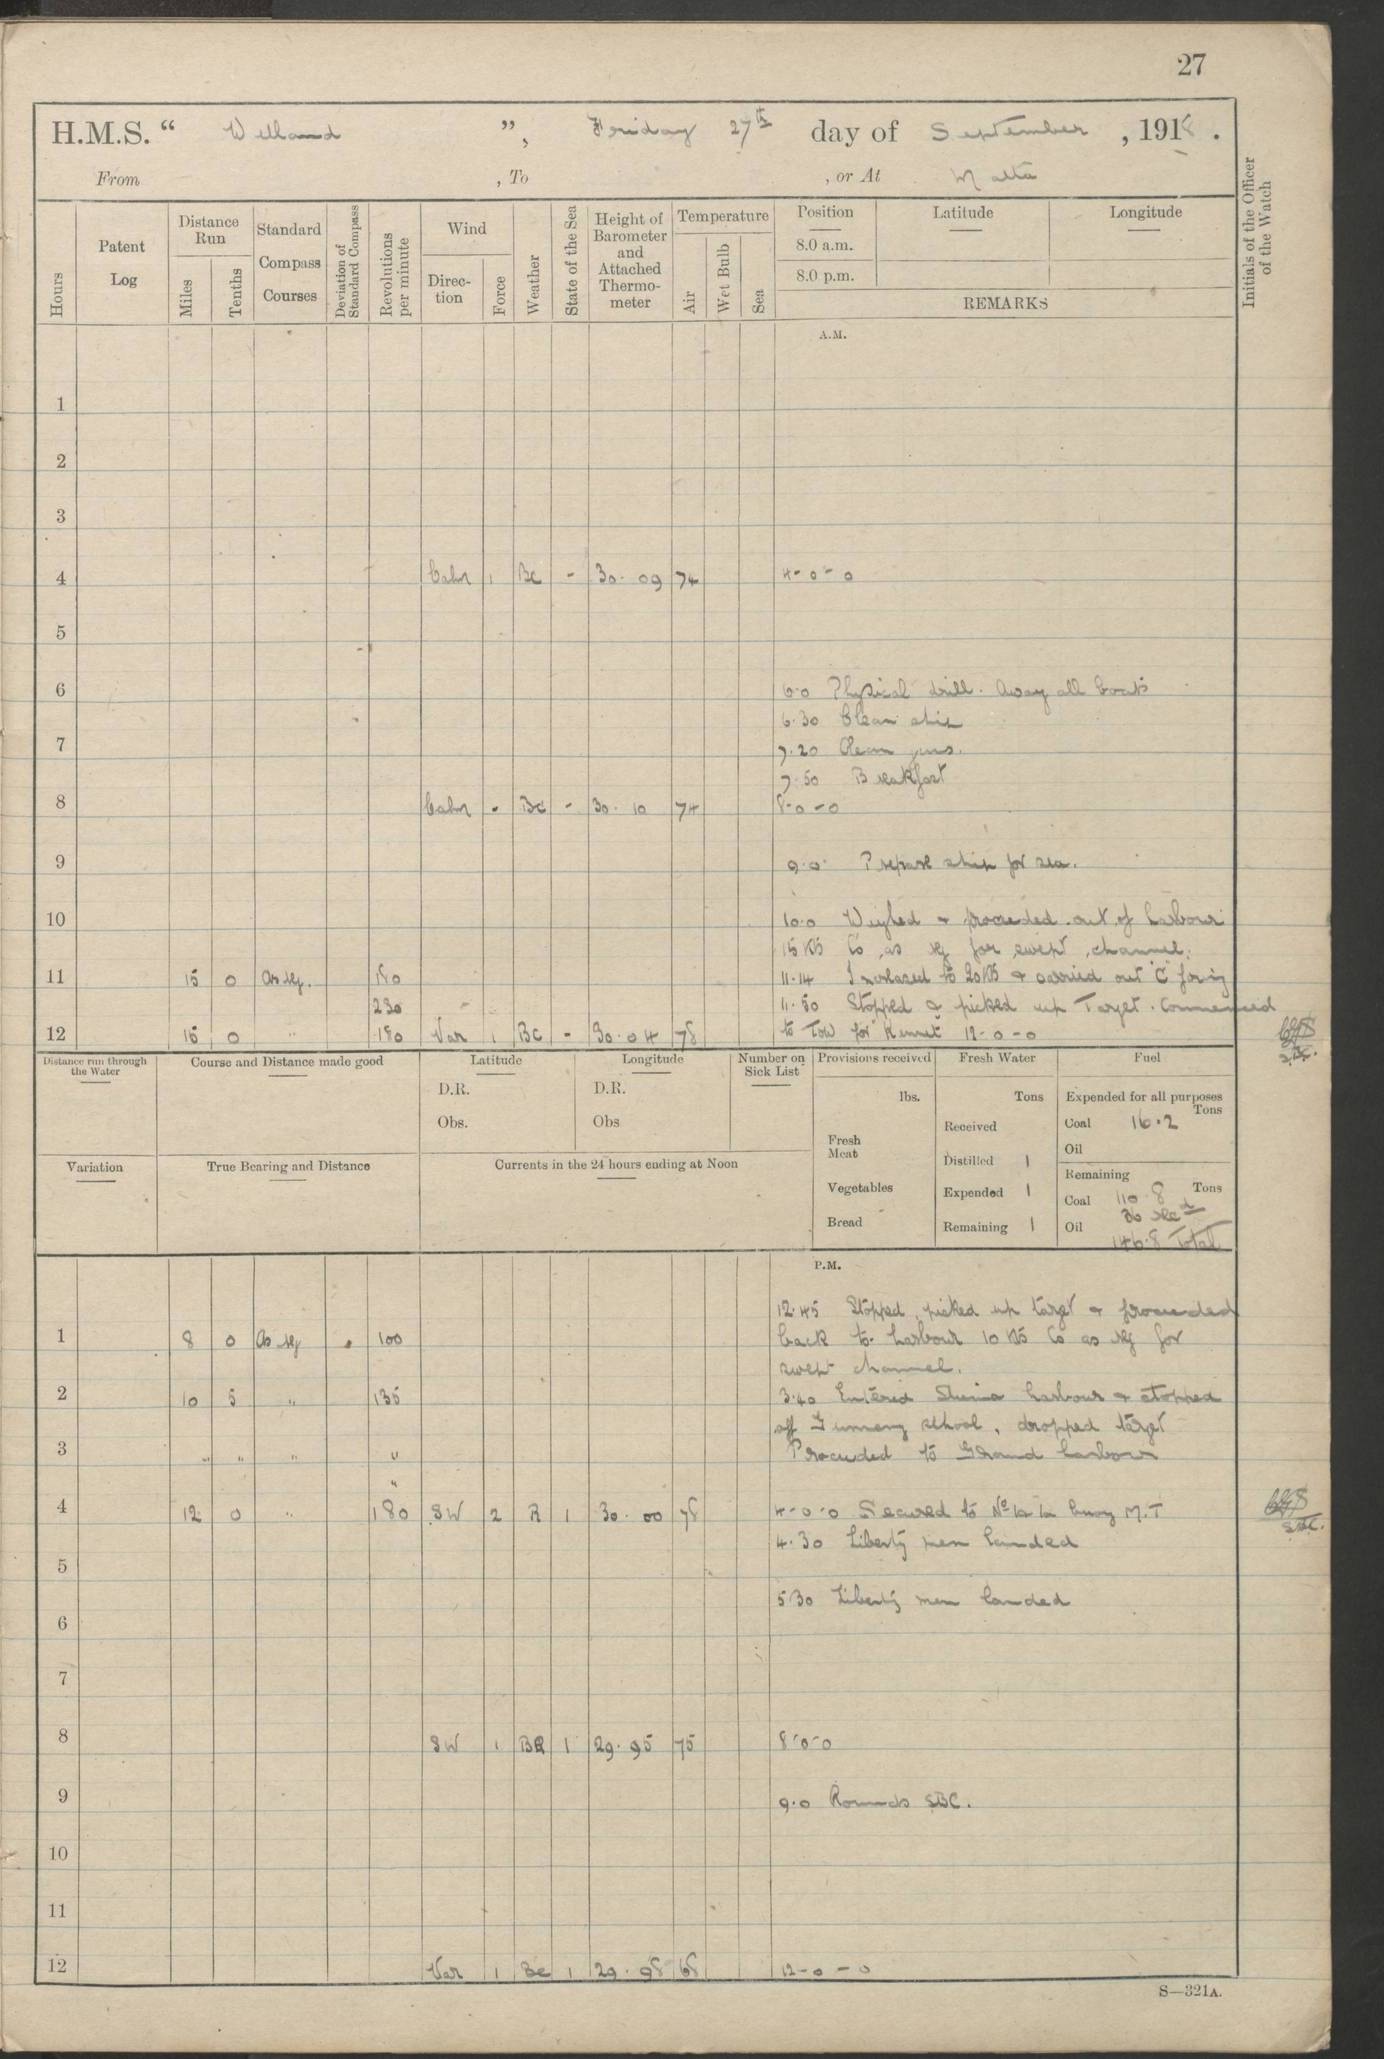 27
H.M.S. “ Welland ”, Friday 27th day of September, 1918.
From , To , or At Malta
Hours
Patent Log
Distance Run
Miles
Tenths
Standard Compass Courses
Deviation of Standard Compass
Revolutions per minute
Wind
Direc-tion
Force
Weather
State of the Sea
Height of Barometer and Attached Thermo-meter
Temperature
Air
Wet Bulb
Sea
Position
8.0 a.m.
8.0 p.m.
Latitude
Longitude
REMARKS
Initials of the Officer of the Watch
A.M.
1
2
3
4 Calm 1 Bc - 30.09 74 4-0-0
5
6 6.0 Physical drill. Away all boats
6.30 Clean ship
7 7.20 Clean guns.
7.50 Breakfast
8 Calm - Bc - 30.10 74 8-0-0
9 9.0 Prepare ship for sea.
10 10.0 Weighed & proceeded out of harbour
15 Kts Co as req for swept channel.
11 15 0 As req. 180 11.14 Increased to 20 Kts & carried out "C" firing
230 11.50 Stopped & picked up Target. Commenced
12 15 0 " 180 Var 1 Bc - 30.04 78 to Tow for Kennet 12-0-0
Distance run through the Water
Course and Distance made good
Latitude
D.R.
Obs.
Longitude
D.R.
Obs
Number on Sick List
Provisions received
lbs.
Fresh Meat
Vegetables
Bread
Fresh Water
Tons
Received
Distilled 1
Expended 1
Remaining 1
Fuel
Expended for all purposes
Tons
Coal 16.2
Oil
Remaining
Tons
Coal 110.8
36 recd
Oil
146.8 Total
Variation
True Bearing and Distance
Currents in the 24 hours ending at Noon
P.M.
12.45 Stopped, picked up target & proceeded
1 8 0 As req 100 back to harbour 10 Kts Co as req for
swept channel.
2 10 5 " 135 3.40 Entered Sliema harbour & stopped
off Gunnery school, dropped target
3 " " " " Proceeded to Grand harbour
"
4 12 0 " 180 SW 2 R 1 30.00 78 4-0-0 Secured to No buoy M.T
4.30 Liberty men landed
SBC.
5
5.30 Liberty men landed
6
7
8 SW 1 BR 1 29.95 75 8-0-0
9 9.0 Rounds SBC.
10
11
12 Var 1 Bc 1 29.98 68 12-0-0
S—321A.